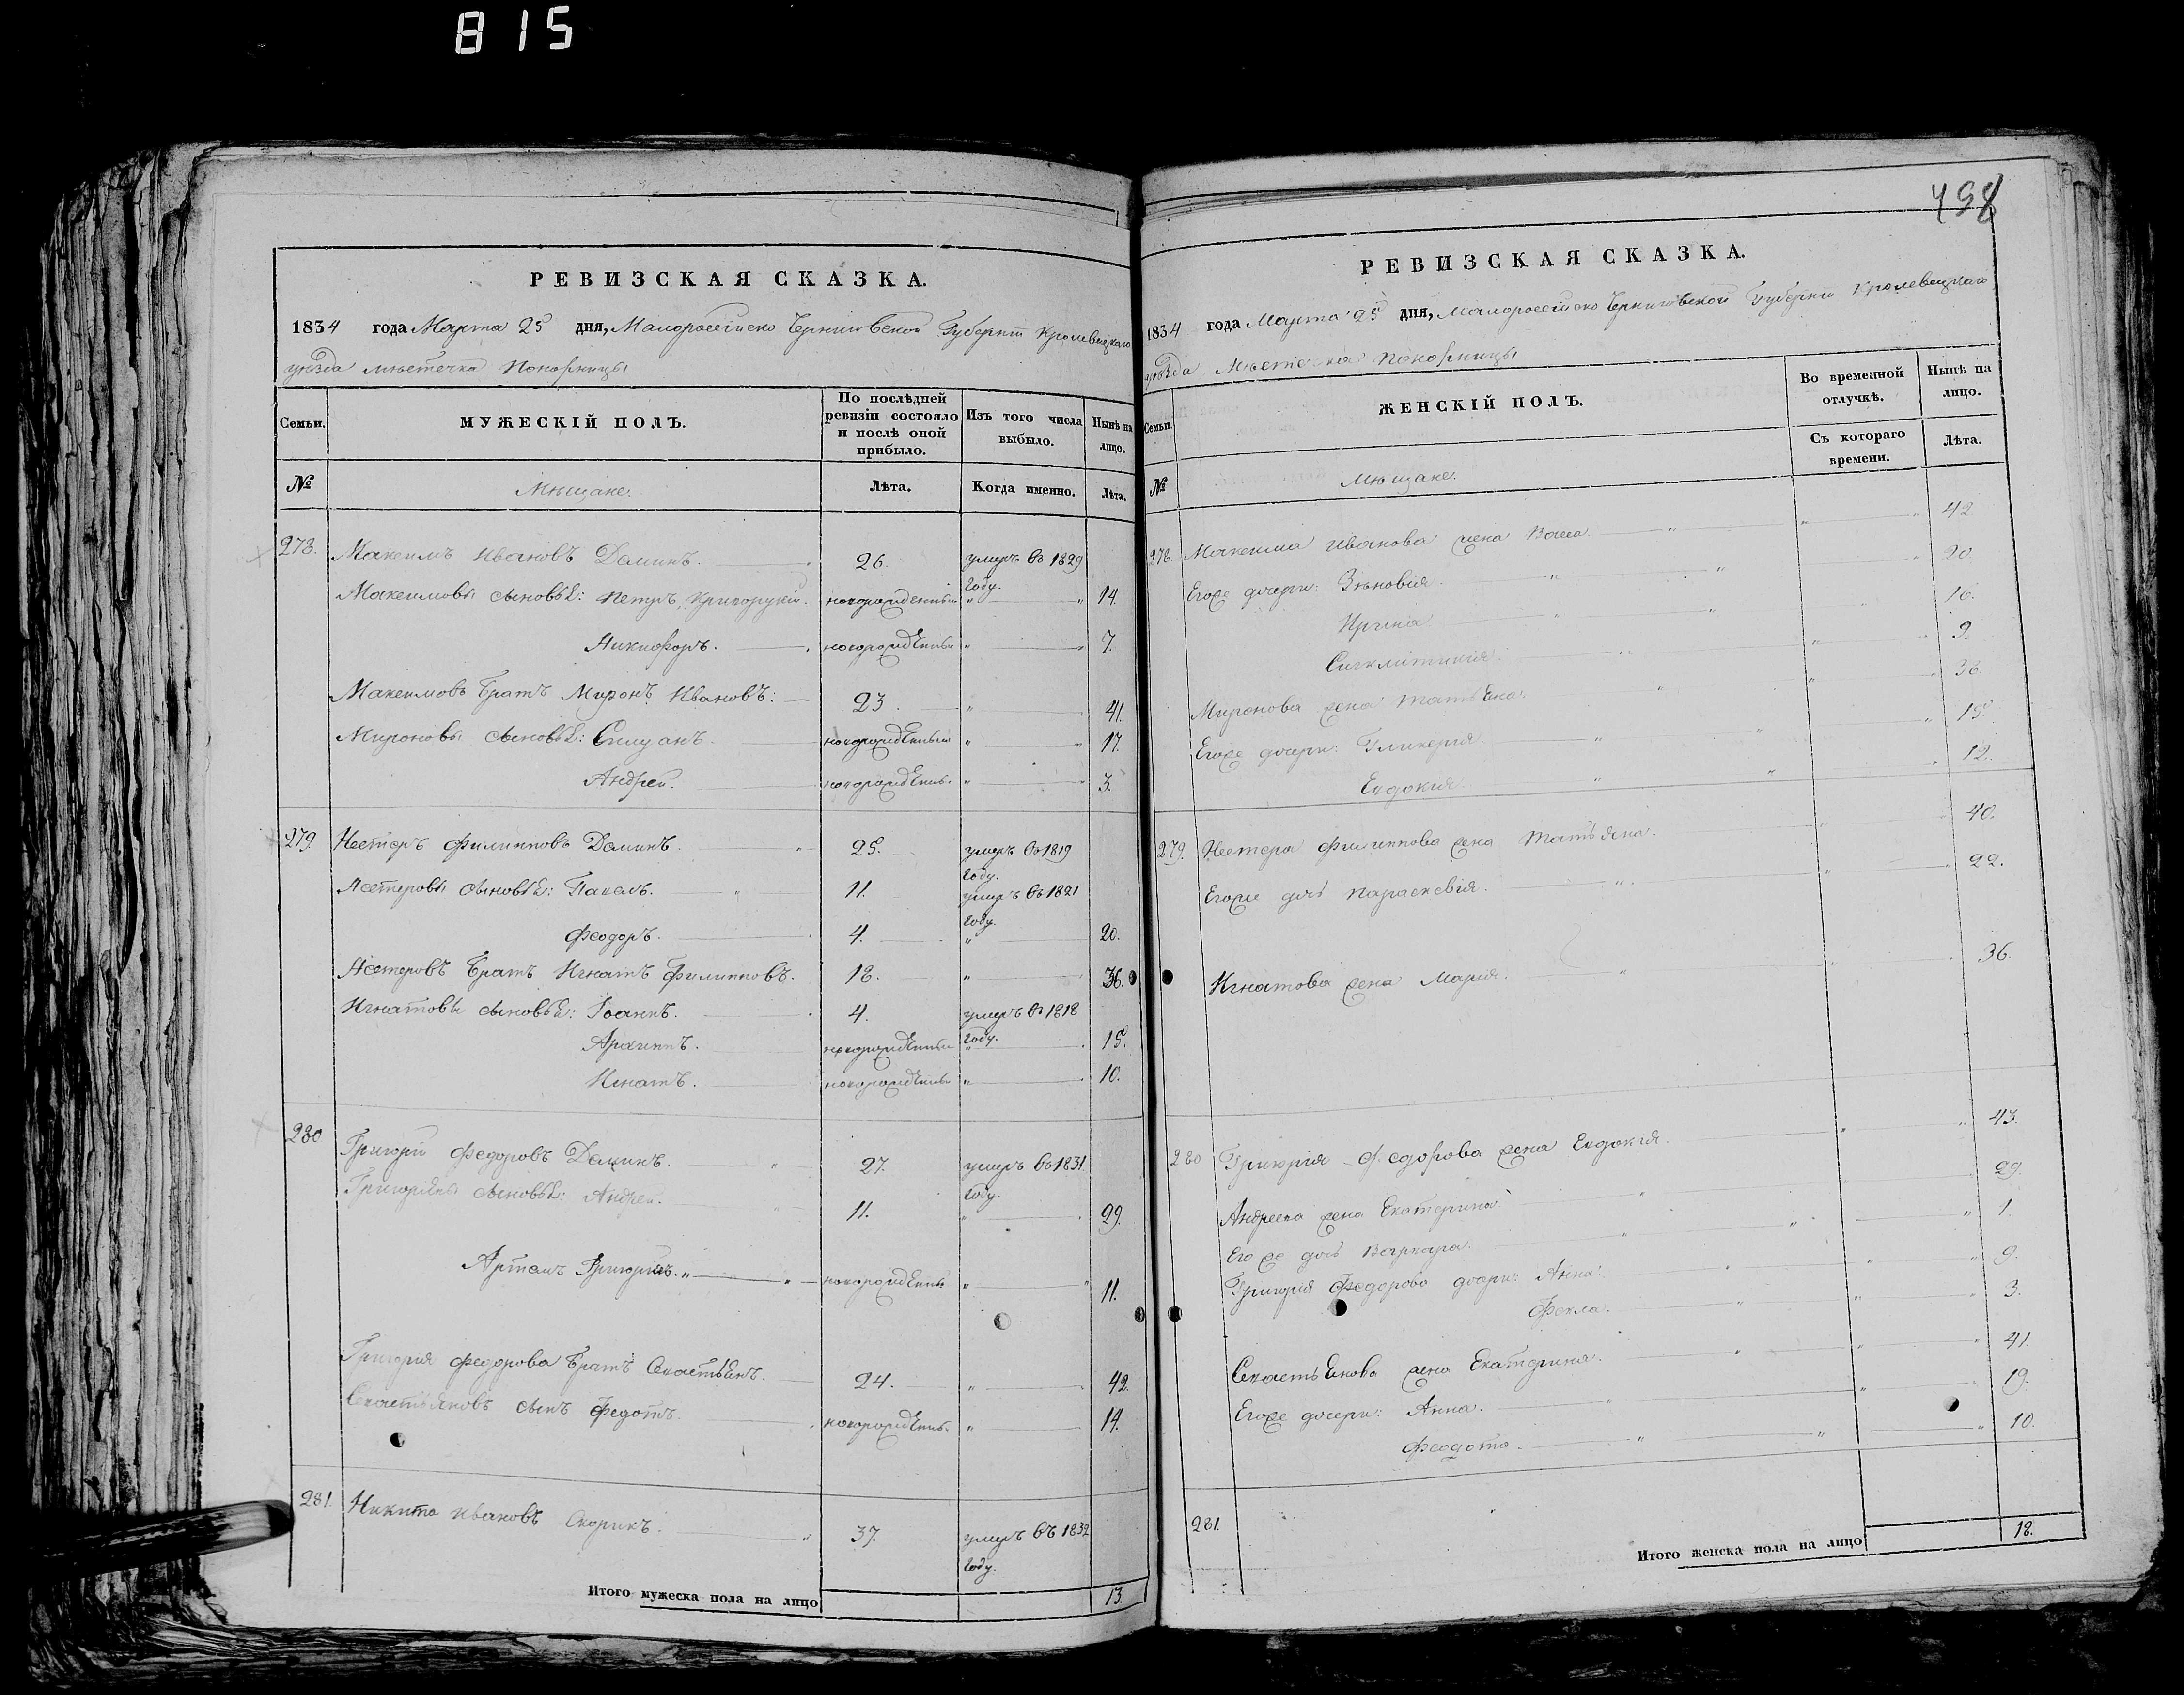 815
РЕВИЗСКАЯ СКАЗКА.
1834 года Марта 25 дня, Малоросійско Черниговской Губерніи Кролевецкаго
уѣзда мѣстечка Понорницы
Семьи.
МУЖЕСКІЙ ПОЛЪ.
По послѣдней ревизіи состояло и послѣ оной прибыло.
Изъ того числа выбыло.
Нынѣ на лицо.
№
Мѣщане.
Лѣта.
Когда именно.
Лѣта.
278. Максимъ Ивановъ Доминъ. 26. умеръ въ 1829 году.
Максимовы сыновья: Петръ, новорожденный " " 14.
Никифоръ. новорожденны " " 7.
Максимовъ братъ Миронъ Ивановъ: 23. " 41.
Мироновы сыновья: Силуанъ. новорожденный " " 17.
Андрей. новорожденны " " 3.
279. Нестеръ Филипповъ Доминъ. 25. умеръ въ 1819 году.
Нестеровы сыновья: Павелъ. 11. умеръ въ 1821 году.
Феодоръ. 4. " 20.
Нестеровъ братъ Игнатъ Филипповъ. 18. " 36.
Игнатовы сыновья: Іоаннъ. 4. умеръ въ 1818 году.
Архипъ. новорожденны " 15.
Игнатъ. новорожденны " 10.
280 Григорій Федоровъ Доминъ. 27. умеръ въ 1831 году.
Григоріевы сыновья: Андрей. 11. " 29.
Артемъ новорожденны " " 11.
Григорія Федорова братъ Севастьянъ. 24. " 42.
Севастьяновъ сынъ Федотъ. новорожденны " 14.
281. Никита Ивановъ Скорикъ. 37. умеръ въ 1832 году.
Итого мужеска пола на лицо 13.
РЕВИЗСКАЯ СКАЗКА.
1834 года Марта 25 дня, Малоросійско Черниговской Губерніи Кролевецкаго
уѣзда Мѣстечка Понорницы
Семьи.
ЖЕНСКІЙ ПОЛЪ.
Во временной отлучкѣ.
Нынѣ на лицо.
Съ котораго времени.
Лѣта.
№
Мѣщане.
278. Максима Иванова жена 42
Егоже дочери: Зѣновія. 20.
Ирина 16.
Сигклитикія. 9.
Миронова жена Татьяна. 36.
Егоже дочери: Гликерія. 15.
Евдокія. 12.
279. Нестера Филиппова жена Татьяна. 40.
Егоже дочь Параскевія. 22.
Игнатова жена Марія. 36.
280 Григорія Федорова жена Евдокія. 43.
Андреева жена Екатерина 29.
Егоже дочь Варвара. 1.
Григорія Федорова дочери: Анна. 9.
Фекла. 3.
Севастьянова жена Екатерина. 41.
Егоже дочери: Анна. 19.
Феодота. 10.
281.
Итого женска пола на лицо 18.